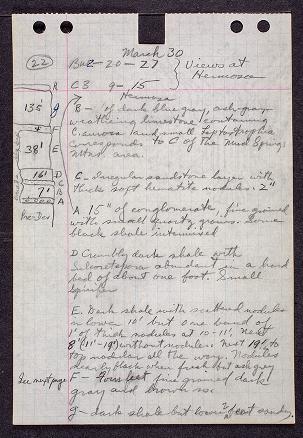 March 30
22
Bu2-20-27 } Views at
C3 9-15 Hermosa
Hermosa
B - 1' of dark blue gray, ash gray
weathering limestone containing
C. and small Leptostrophia
corresponds to C of the Mud Springs
Mtns. area
C - Irregular sandstone layer with
thick soft hematite nodules. 2"
A 15" of conglomerate, fine grained
with small quartz, grains. Some
black shale intermixed
D Crumbly dark shale with
Sulcoretepora abundant in a hard
bed of about one foot. Small
Spirifer
E. Dark shale with scattered nodules
in lower 10' but one band of
1' of thick nodules at 10-11. Next
8' (11'-19') without nodules. Next 19' to
top nodular all the way. Nodules
nearly black when fresh but ash gray
See next page
F - Four feet fine grained dark
gray and brown ss.
g - dark shale but lower 2 feet sandy.
R
135 g
4 F
38' E
16' D
C
7' B
A
Pre Dev